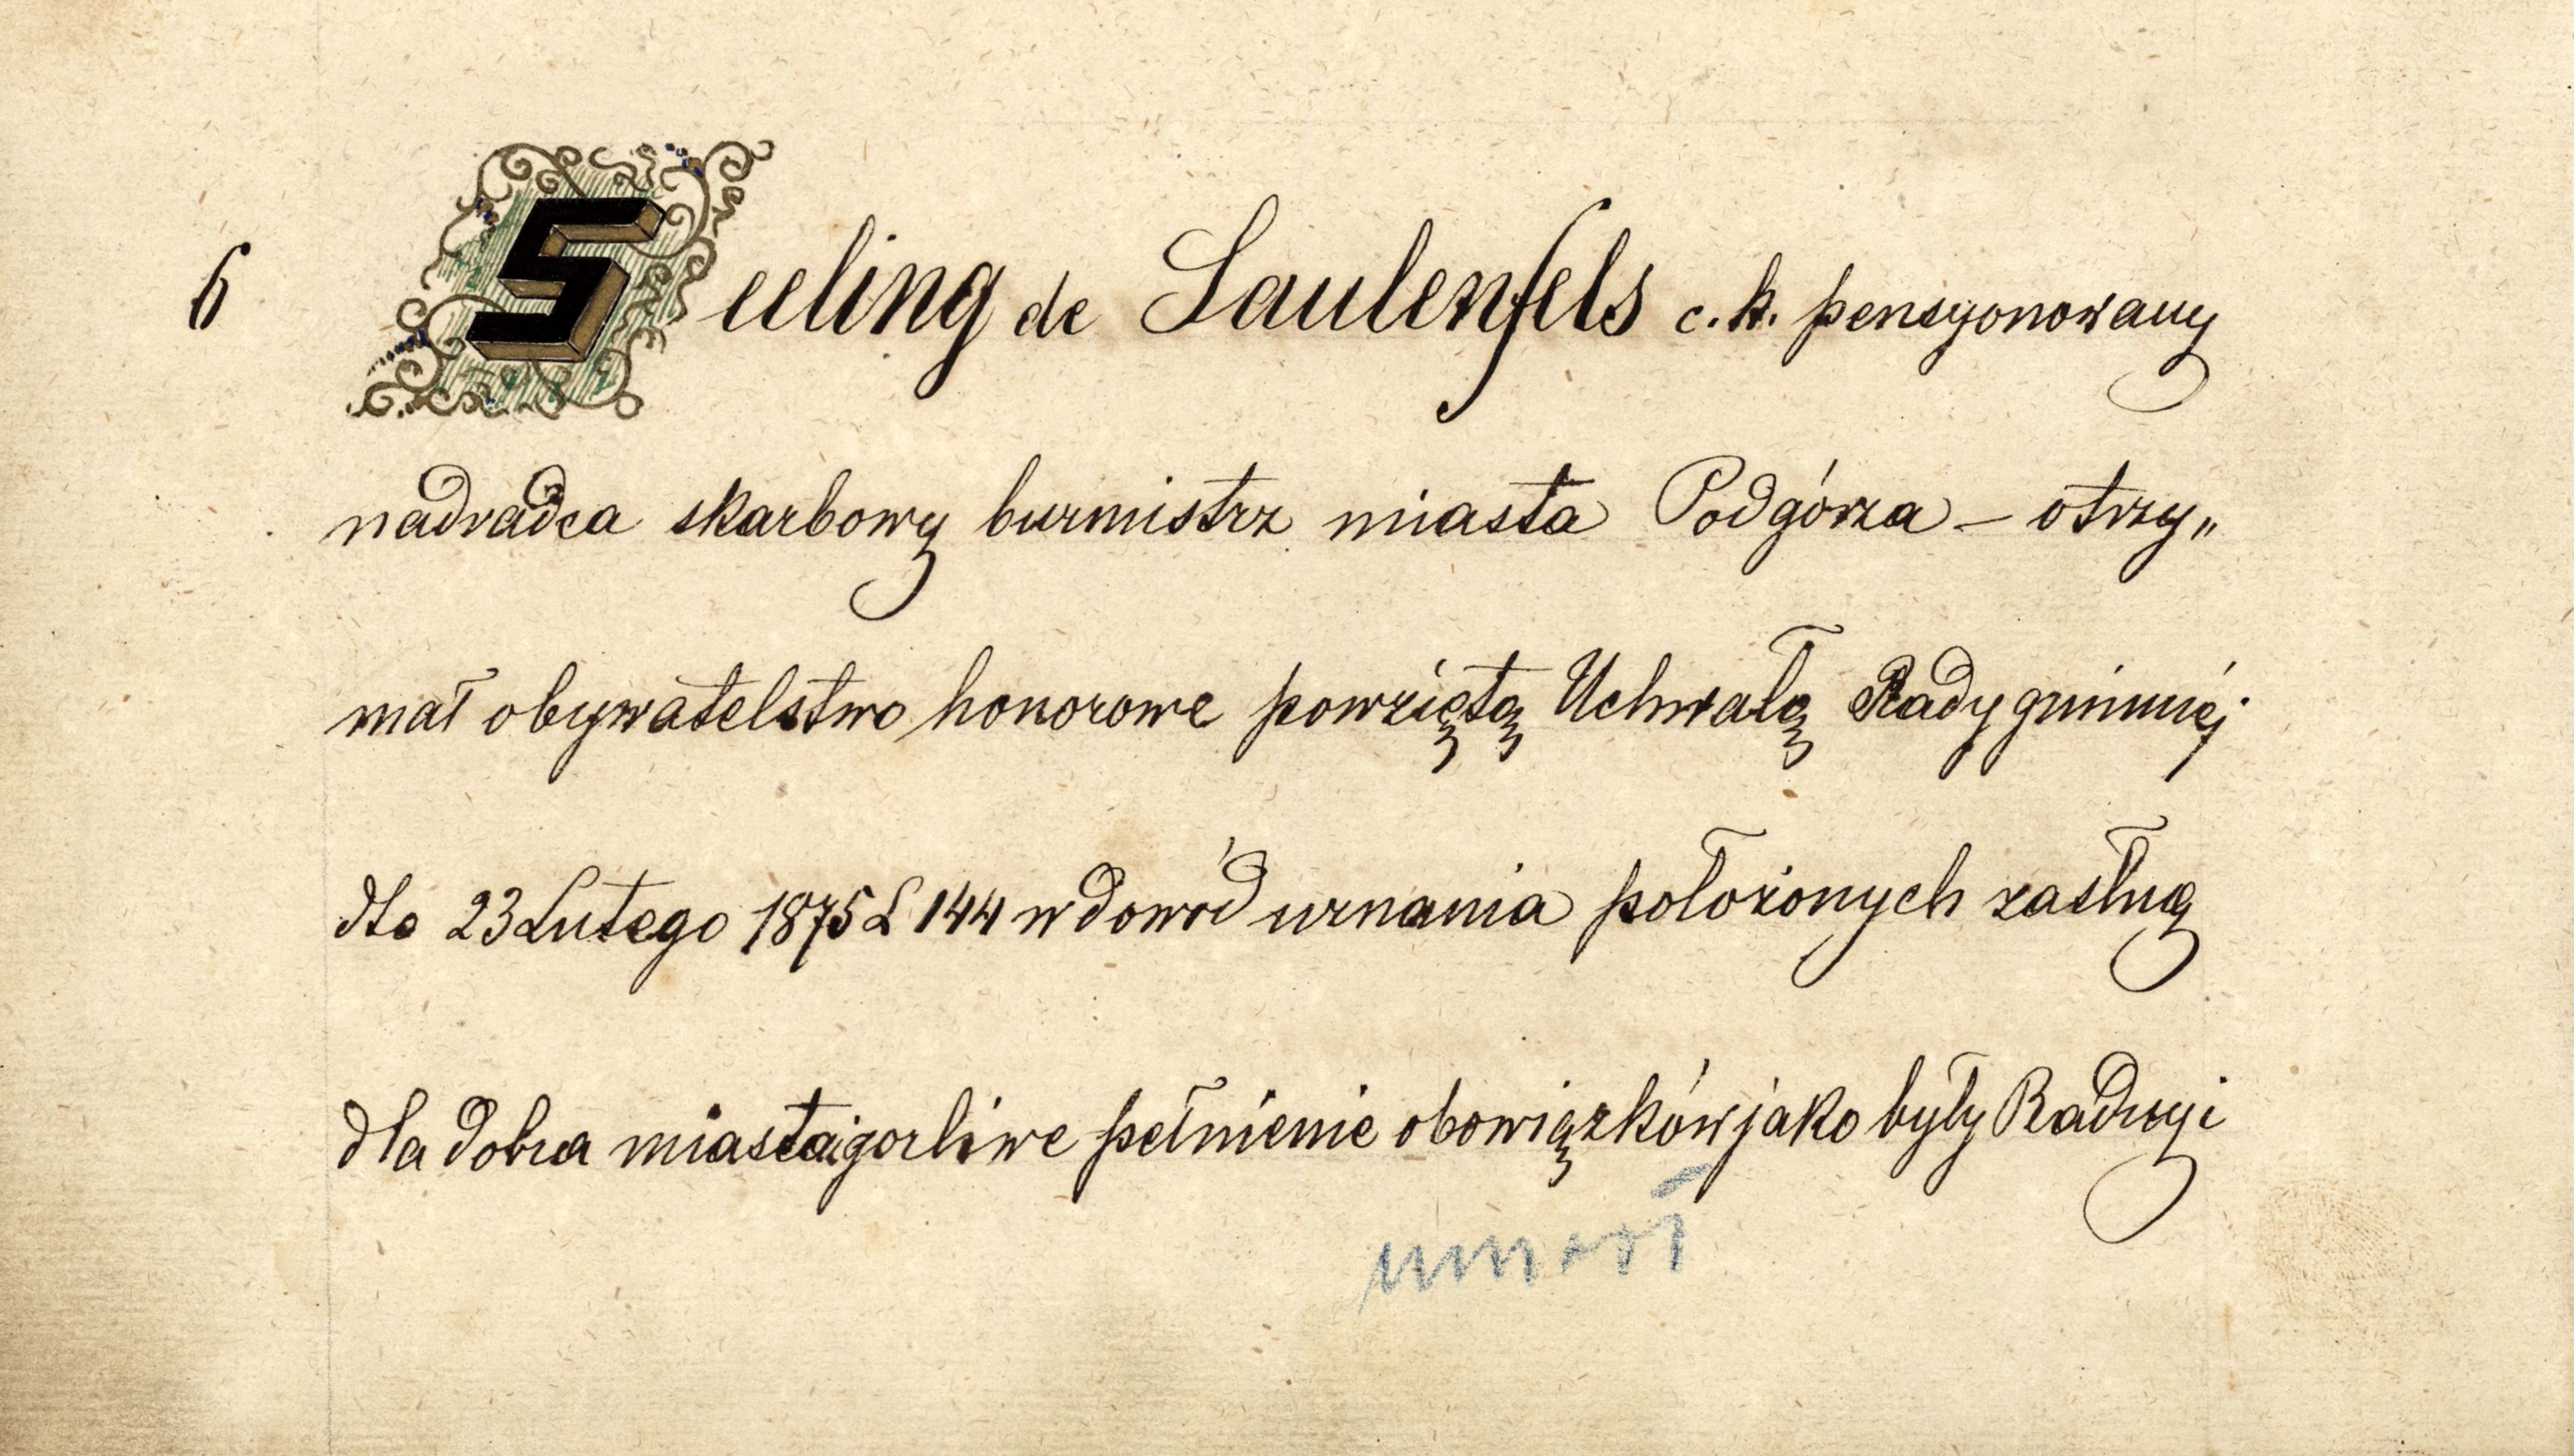 6 Seeling de Saulenfels c.k. pensyonowany
nadradca skarbowy burmistrz miasta Podgórza – otrzy„
mał obywatelstwo honorowe powziętą Uchwałą Rady gminnéj
dto 23 Lutego 1875 L 144 w dowód uznania położonych zasług
dla dobra miasta i gorliwe pełnienie obowiązków jako były Radny i
umarł